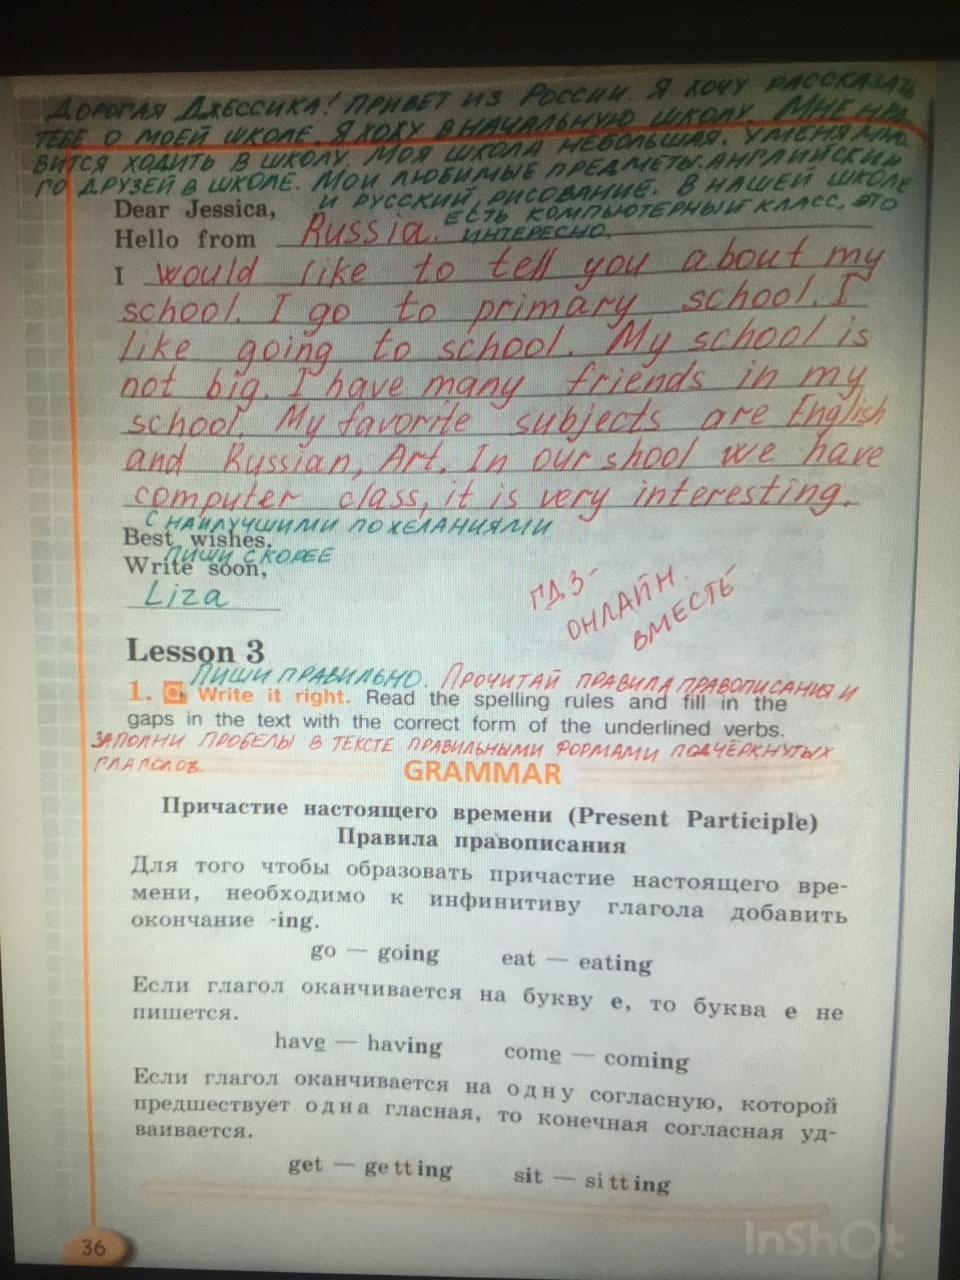 ДОРОГАЯ ДЖЕССИКА! ПРИВЕТ ИЗ РОССИИ. Я ХОЧУ РАССКАЗАТЬ
ТЕБЕ О МОЕЙ ШКОЛЕ. Я ХОЖУ В НАЧАЛЬНУЮ ШКОЛУ. МНЕ НРА
ВИТСЯ ХОДИТЬ В ШКОЛУ. МОЯ ШКОЛА НЕБОЛЬШАЯ. У МЕНЯ МНО
ГО ДРУЗЕЙ В ШКОЛЕ. МОИ ЛЮБИМЫЕ ПРЕДМЕТЫ: АНГЛИЙСКИЙ
И РУССКИЙ, РИСОВАНИЕ. В НАШЕЙ ШКОЛЕ
Dear Jessica,
ЕСТЬ КОМПЬЮТЕРНЫЙ КЛАСС, ЭТО
ИНТЕРЕСНО.
Hello from Russia.
I would like to tell you about my
school. I go to primary school. I
like going to school. My school is
not big. I have many friends in my
school. My favorite subjects are English
and Russian, Art. In our shool we have
computer class, it is very interesting.
С НАИЛУЧШИМИ ПОЖЕЛАНИЯМИ
Best wishes.
ПИШИ СКОРЕЕ
Write soon,
Liza
ГДЗ-
ОНЛАЙН
ВМЕСТЬ
Lesson 3
ПИШИ ПРАВИЛЬНО. ПРОЧИТАЙ ПРАВИЛА ПРАВОПИСАНИЯ И
1. Write it right. Read the spelling rules and fill in the
gaps in the text with the correct form of the underlined verbs.
ЗАПОЛНИ ПРОБЕЛЫ В ТЕКСТЕ ПРАВИЛЬНЫМИ ФОРМАМИ ПОДЧЁРКНУТЫХ
ГЛАГОЛОВ.
GRAMMAR
Причастие настоящего времени (Present Participle)
Правила правописания
Для того чтобы образовать причастие настоящего вре-
мени, необходимо к инфинитиву глагола добавить
окончание -ing.
go — going eat — eating
Если глагол оканчивается на букву e, то буква e не
пишется.
have — having come — coming
Если глагол оканчивается на одну согласную, которой
предшествует одна гласная, то конечная согласная уд-
ваивается.
get — getting sit — sitting
36
InShOt